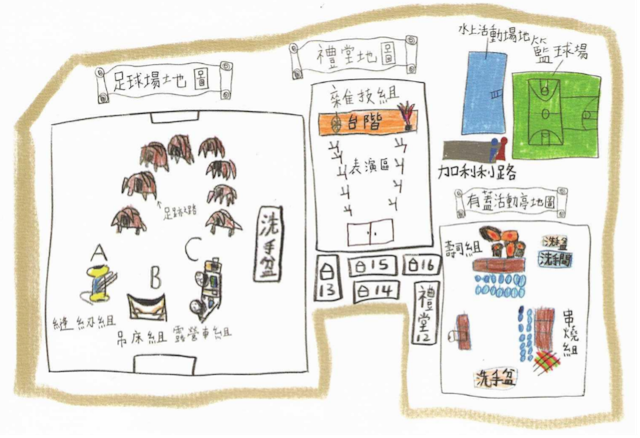 足球場地圖
A
B
C
縫紉組
吊床組
露營車組
洗手盆
禮堂地圖
雜技組
台階
表演區
白13
白14
白15
白16
禮堂12
水上活動場地
籃球場
加利利路
有蓋活動亭地圖
壽司組
洗手盆
洗手間
串燒組
洗手盆